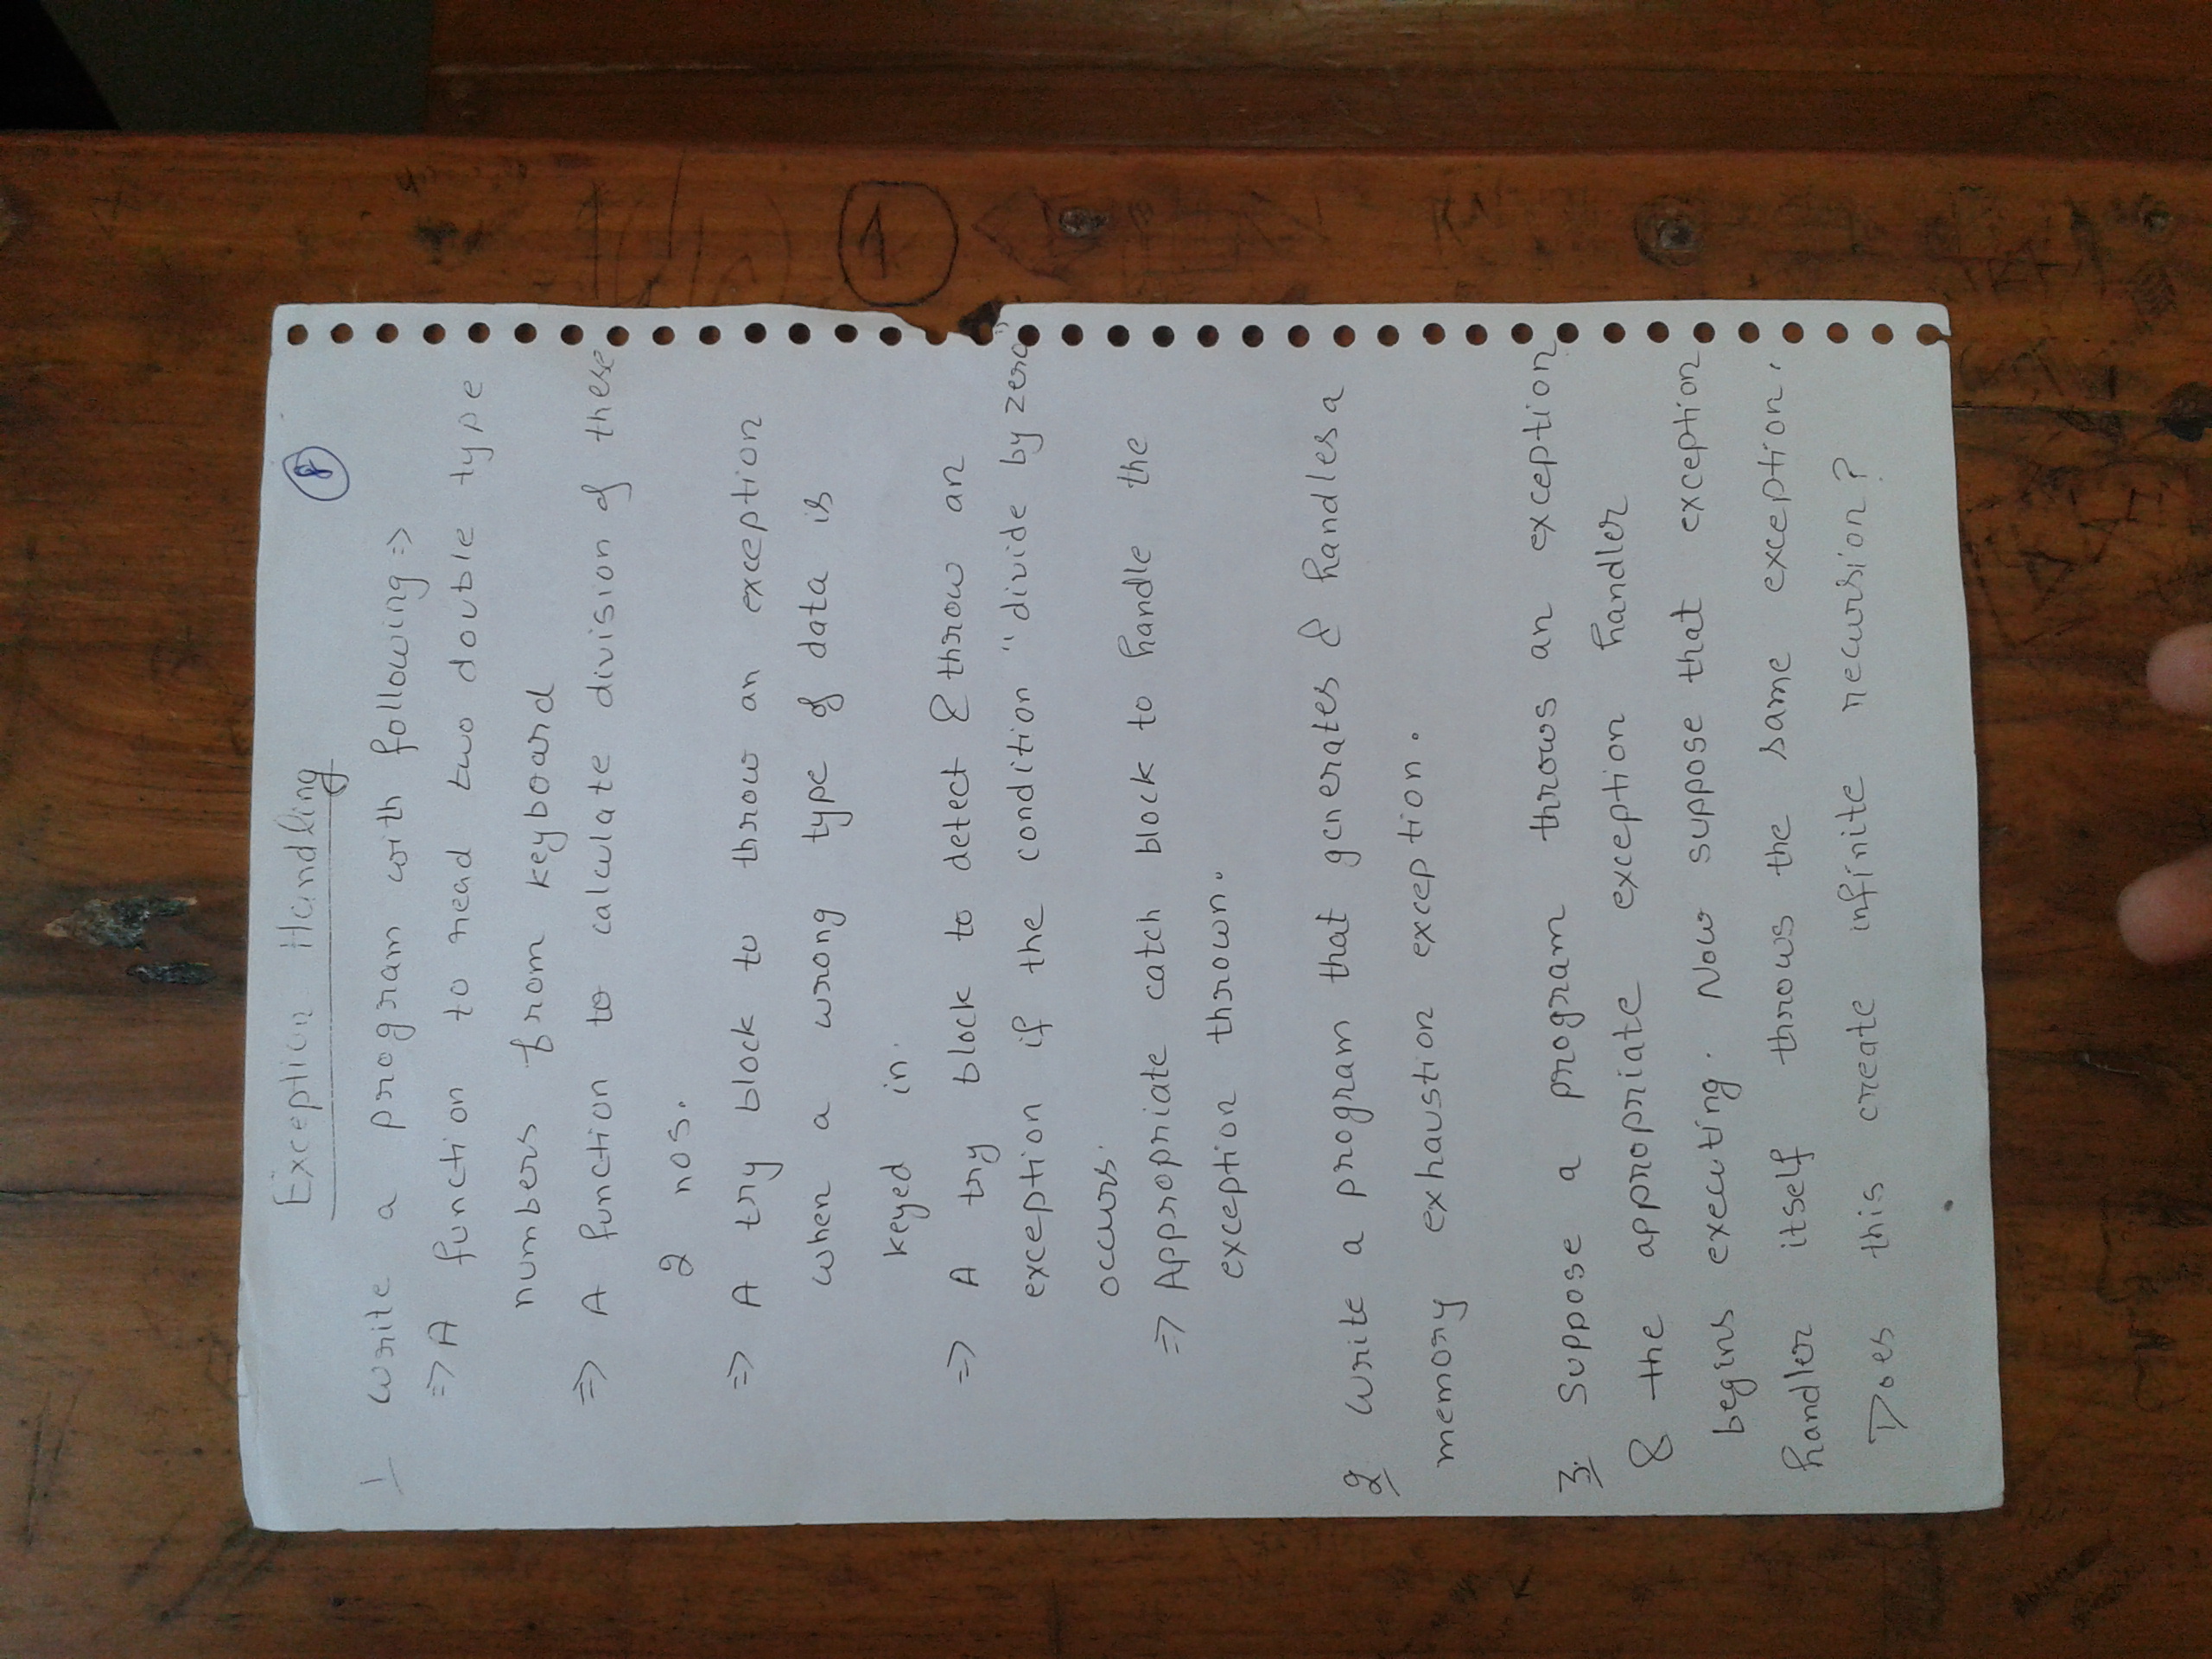 Exception Handling
8
1 Write a program with following =>
=> A function to read two double type
numbers from keyboard
=> A function to calculate division of these
2 nos.
=> A try block to throw an exception
when a wrong type of data is
keyed in.
=> A try block to detect & throw an
exception if the condition "divide by zero"
occurs.
=> Appropriate catch block to handle the
exception thrown.
2 Write a program that generates & handles a
memory exhaustion exception.
3. Suppose a program throws an exception
& the appropriate exception handler
begins executing. Now suppose that exception
handler itself throws the same exception.
Does this create infinite recursion?